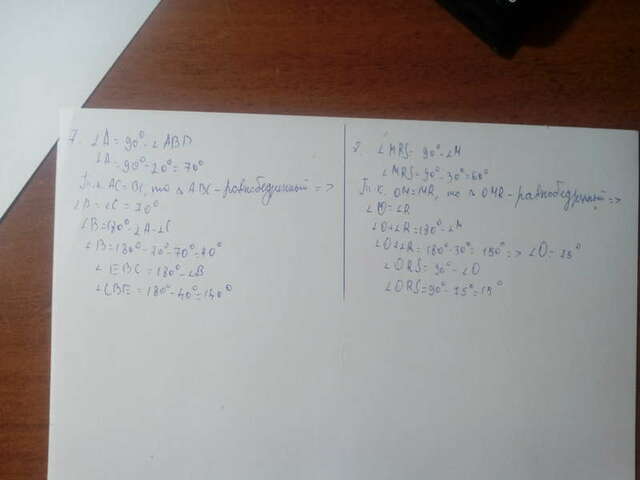 7. ∠A = 90° - ∠ABD
∠A = 90° - 20° = 70°
Т.к. AC = BC, то △ ABC - равнобедренный =>
∠B = ∠C = 70°
∠B = 180° - ∠A - ∠C
∠B = 180° - 70° - 70° = 40°
∠EBC = 180° - ∠B
∠CBE = 180° - 40° = 140°
8. ∠MRS = 90° - ∠M
∠MRS = 90° - 30° = 60°
Т.к. OM = MR, то △ OMR - равнобедренный =>
∠O = ∠R
∠O + ∠R = 180° - ∠M
∠O + ∠R = 180° - 30° = 150° => ∠O = 75°
∠ORS = 90° - ∠O
∠ORS = 90° - 75° = 15°